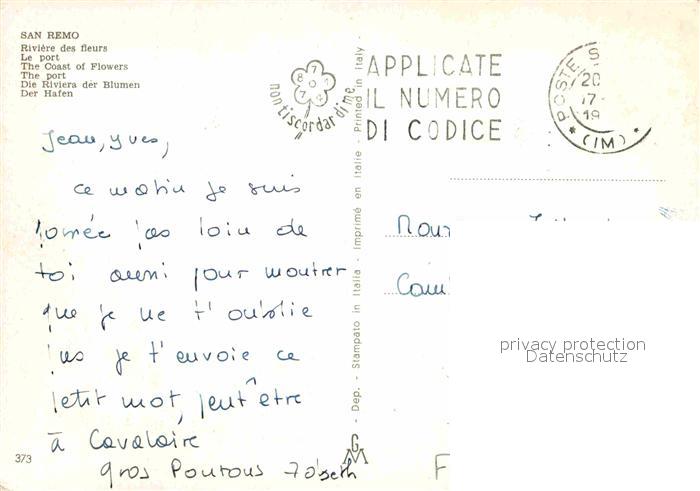 SAN REMO
Rivière des fleurs
Le port
The Coast of Flowers
The port
Die Riviera der Blumen
Der Hafen
nontiscordardime
APPLICATE
IL NUMERO
DI CODICE
POSTE S
20
17-
19
(IM)
Jean, yves,
ce matin je suis
passée pas loin de
toi aussi pour montrer
que je ne t'oublie
pas je t'envoie ce
petit mot, peut être
à Cavalaire
gros Poutous
373
Dep. - Stampato in Italia - Imprimé en Italie - Printed in Italy
privacy protection
Datenschutz
F